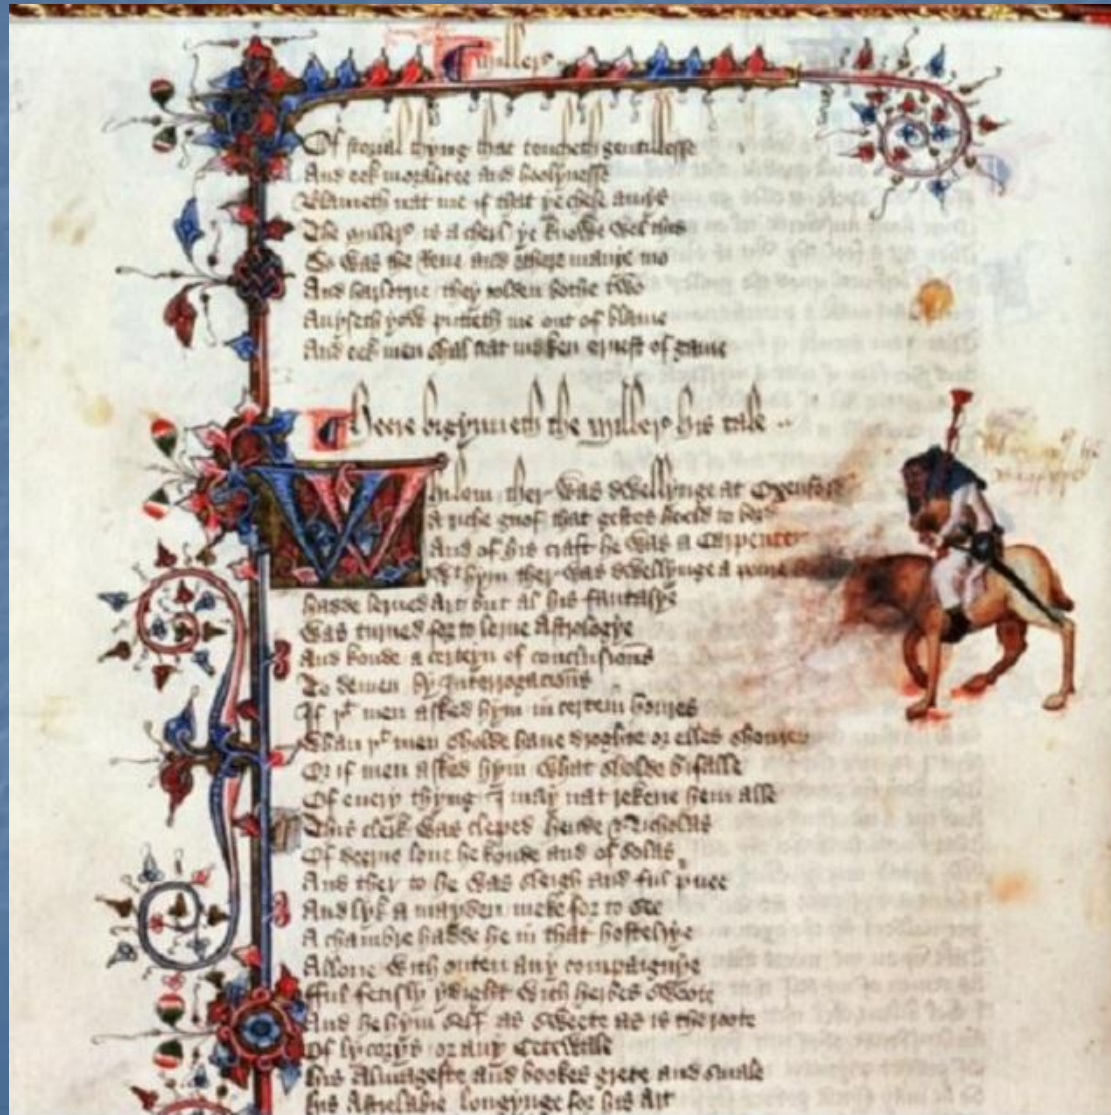 ¶ Miller
Of storial thyng that toucheth gentillesse
And eek moralitee and hoolynesse
Blameth nat me if that ye chese amys
The Millere is a cherl ye knowe wel this
So was the Reue and othere manye mo
And harlotrie they tolden bothe two
Auyseth yow putteth me out of blame
And eek men shal nat maken ernest of game
¶ Heere bigynneth the Millere his tale
Whilom ther was dwellynge at Oxenford
A riche gnof that gestes heeld to bord
And of his craft he was a Carpenter
With hym ther was dwellynge a poure
hadde lerned Art but al his fantasye
Was turned for to lerne Astrologye
And koude a certeyn of conclusions
To demen by Interrogacions
If þt men asked hym in certein houres
Whan þt men sholde haue droghte or elles shoures
Or if men asked hym what sholde bifalle
Of euery thyng I may nat rekene hem alle
This clerk was cleped hende Nicholas
Of deerne loue he koude and of solas
And ther to he was sleigh and ful priuee
And lyk a mayden meke for to see
A chambre hadde he in that hostelrye
Allone with outen any compaignye
fful fetisly ydight with herbes swoote
And he hym self as sweete as is the roote
Of lycorys or any Cetewale
his Almageste and bookes grete and smale
his Astrelabie longynge for his Art